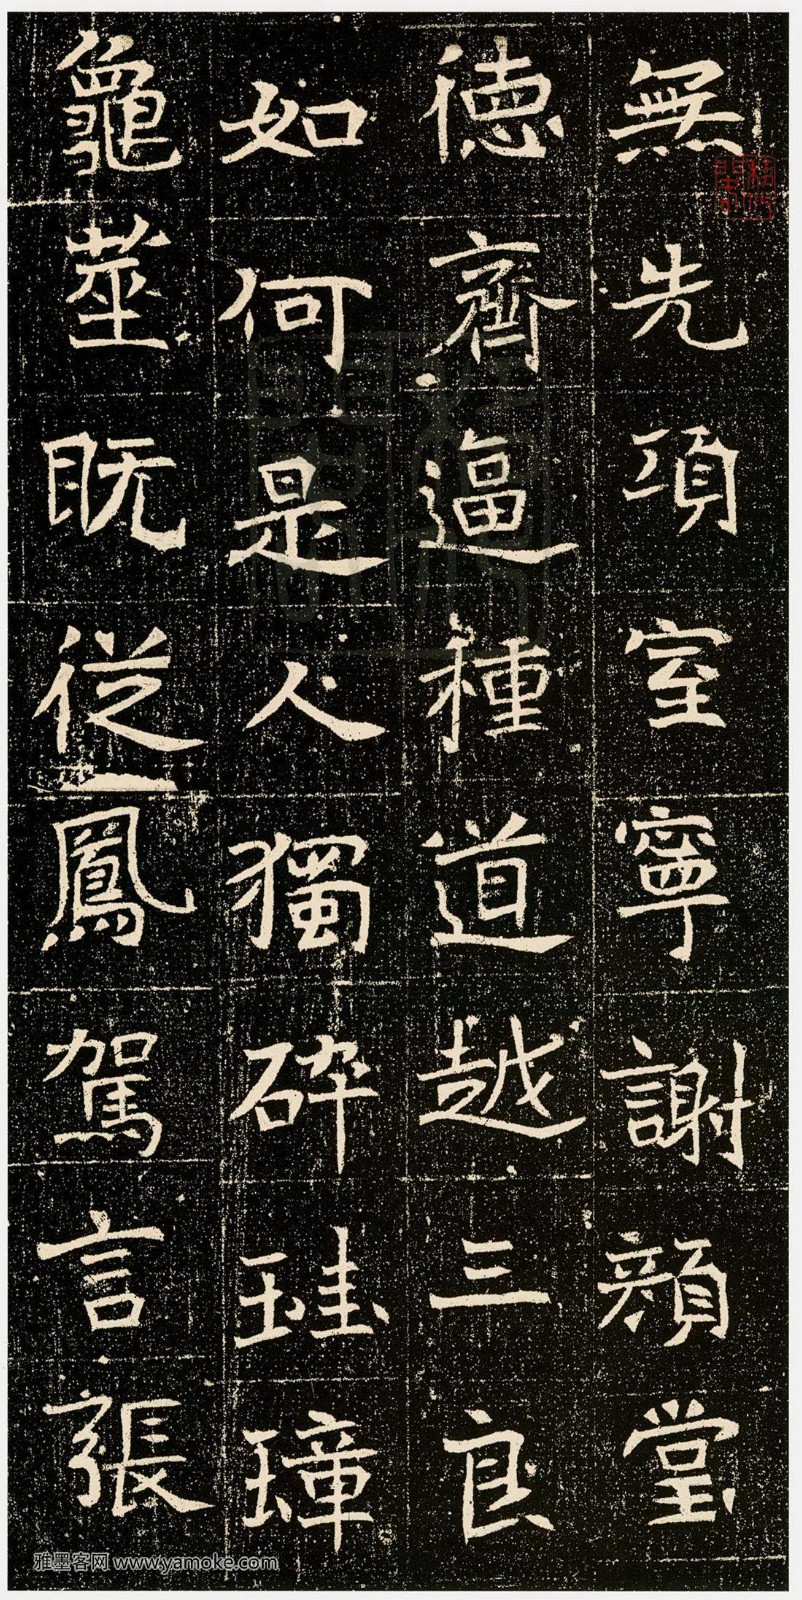 無先項室寧謝顔堂
德齊逼種道越三良
如何是人獨碎珪璋
龜莁既從鳳駕言張
雅墨客网 www.yamoke.com